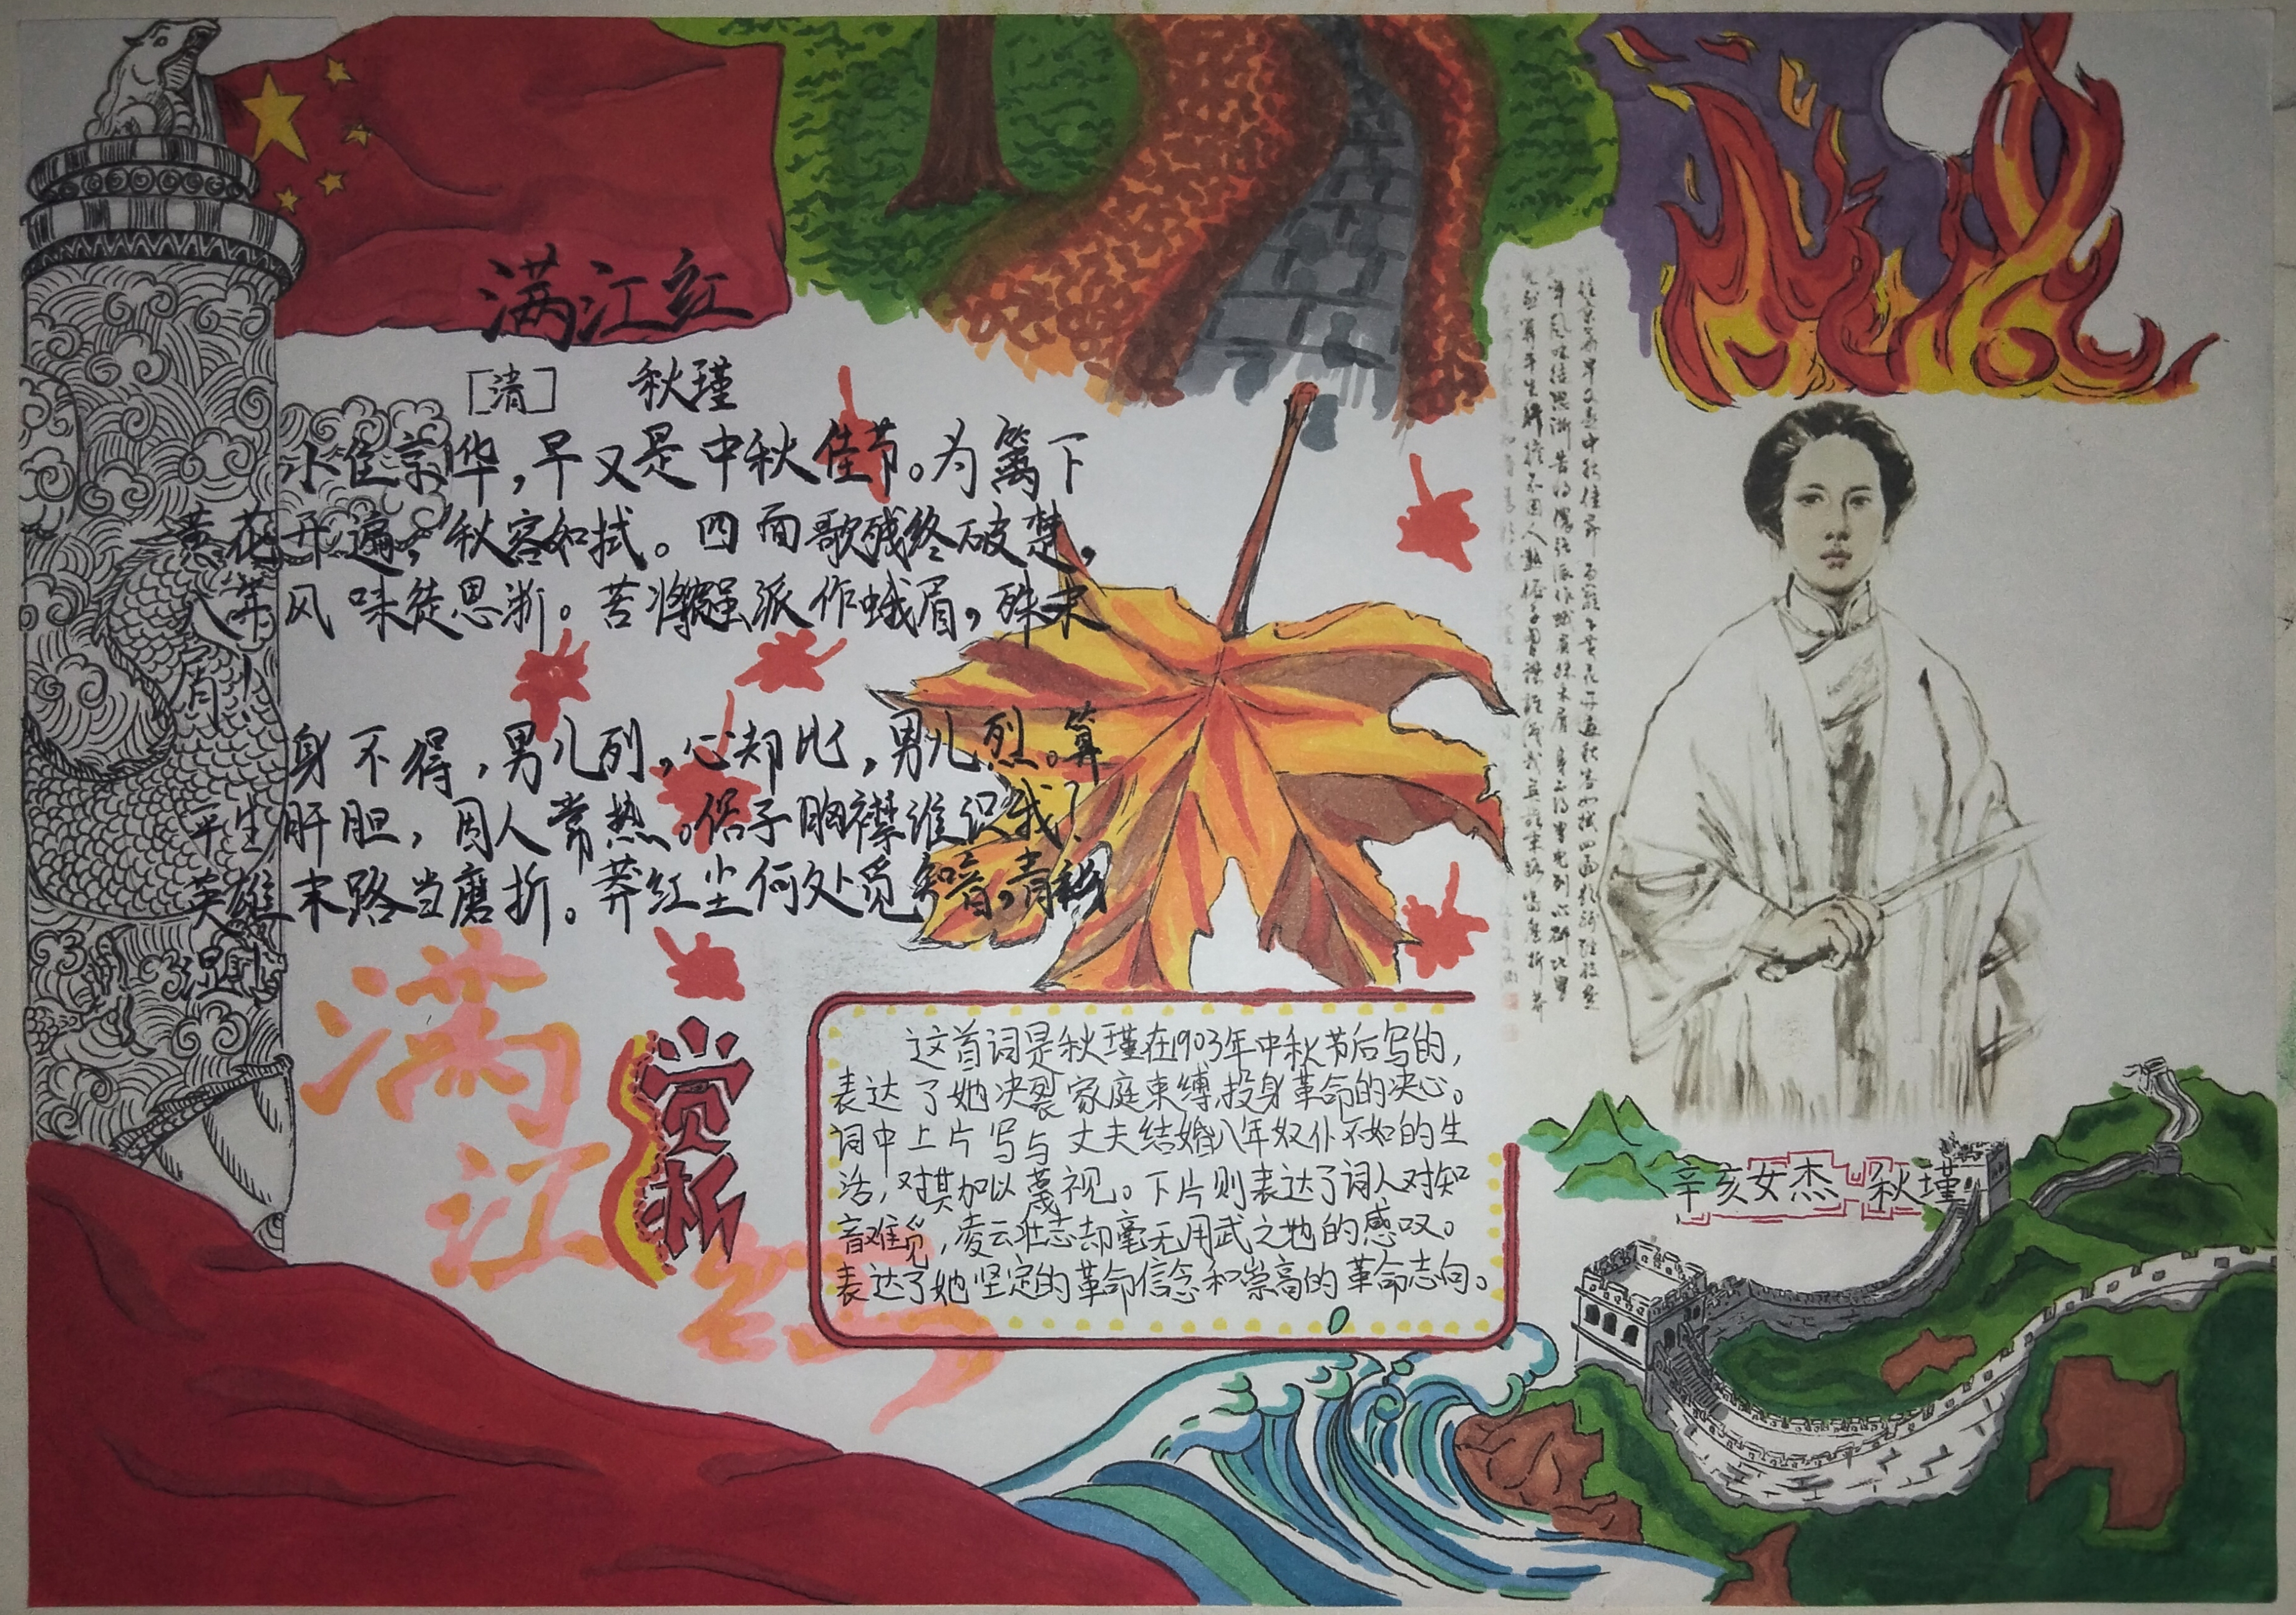 满江红
[清] 秋瑾
小住京华,早又是中秋佳节。为篱下
黄花开遍,秋容如拭。四面歌残终破楚,
八年风味徒思浙。苦将强派作蛾眉,殊未
屑!
身不得,男儿列,心却比,男儿烈。算
平生肝胆,因人常热。俗子胸襟谁识我?
英雄末路当磨折。莽红尘何处觅知音,青衫
湿!
满
江
红
赏
析
这首词是秋瑾在1903年中秋节后写的,
表达了她决裂家庭束缚,投身革命的决心。
词中上片写与丈夫结婚八年奴仆不如的生
活,对其加以蔑视。下片则表达了词人对知
音难觅,凌云壮志却毫无用武之地的感叹。
表达了她坚定的革命信念和崇高的革命志向。
辛亥女杰-秋瑾